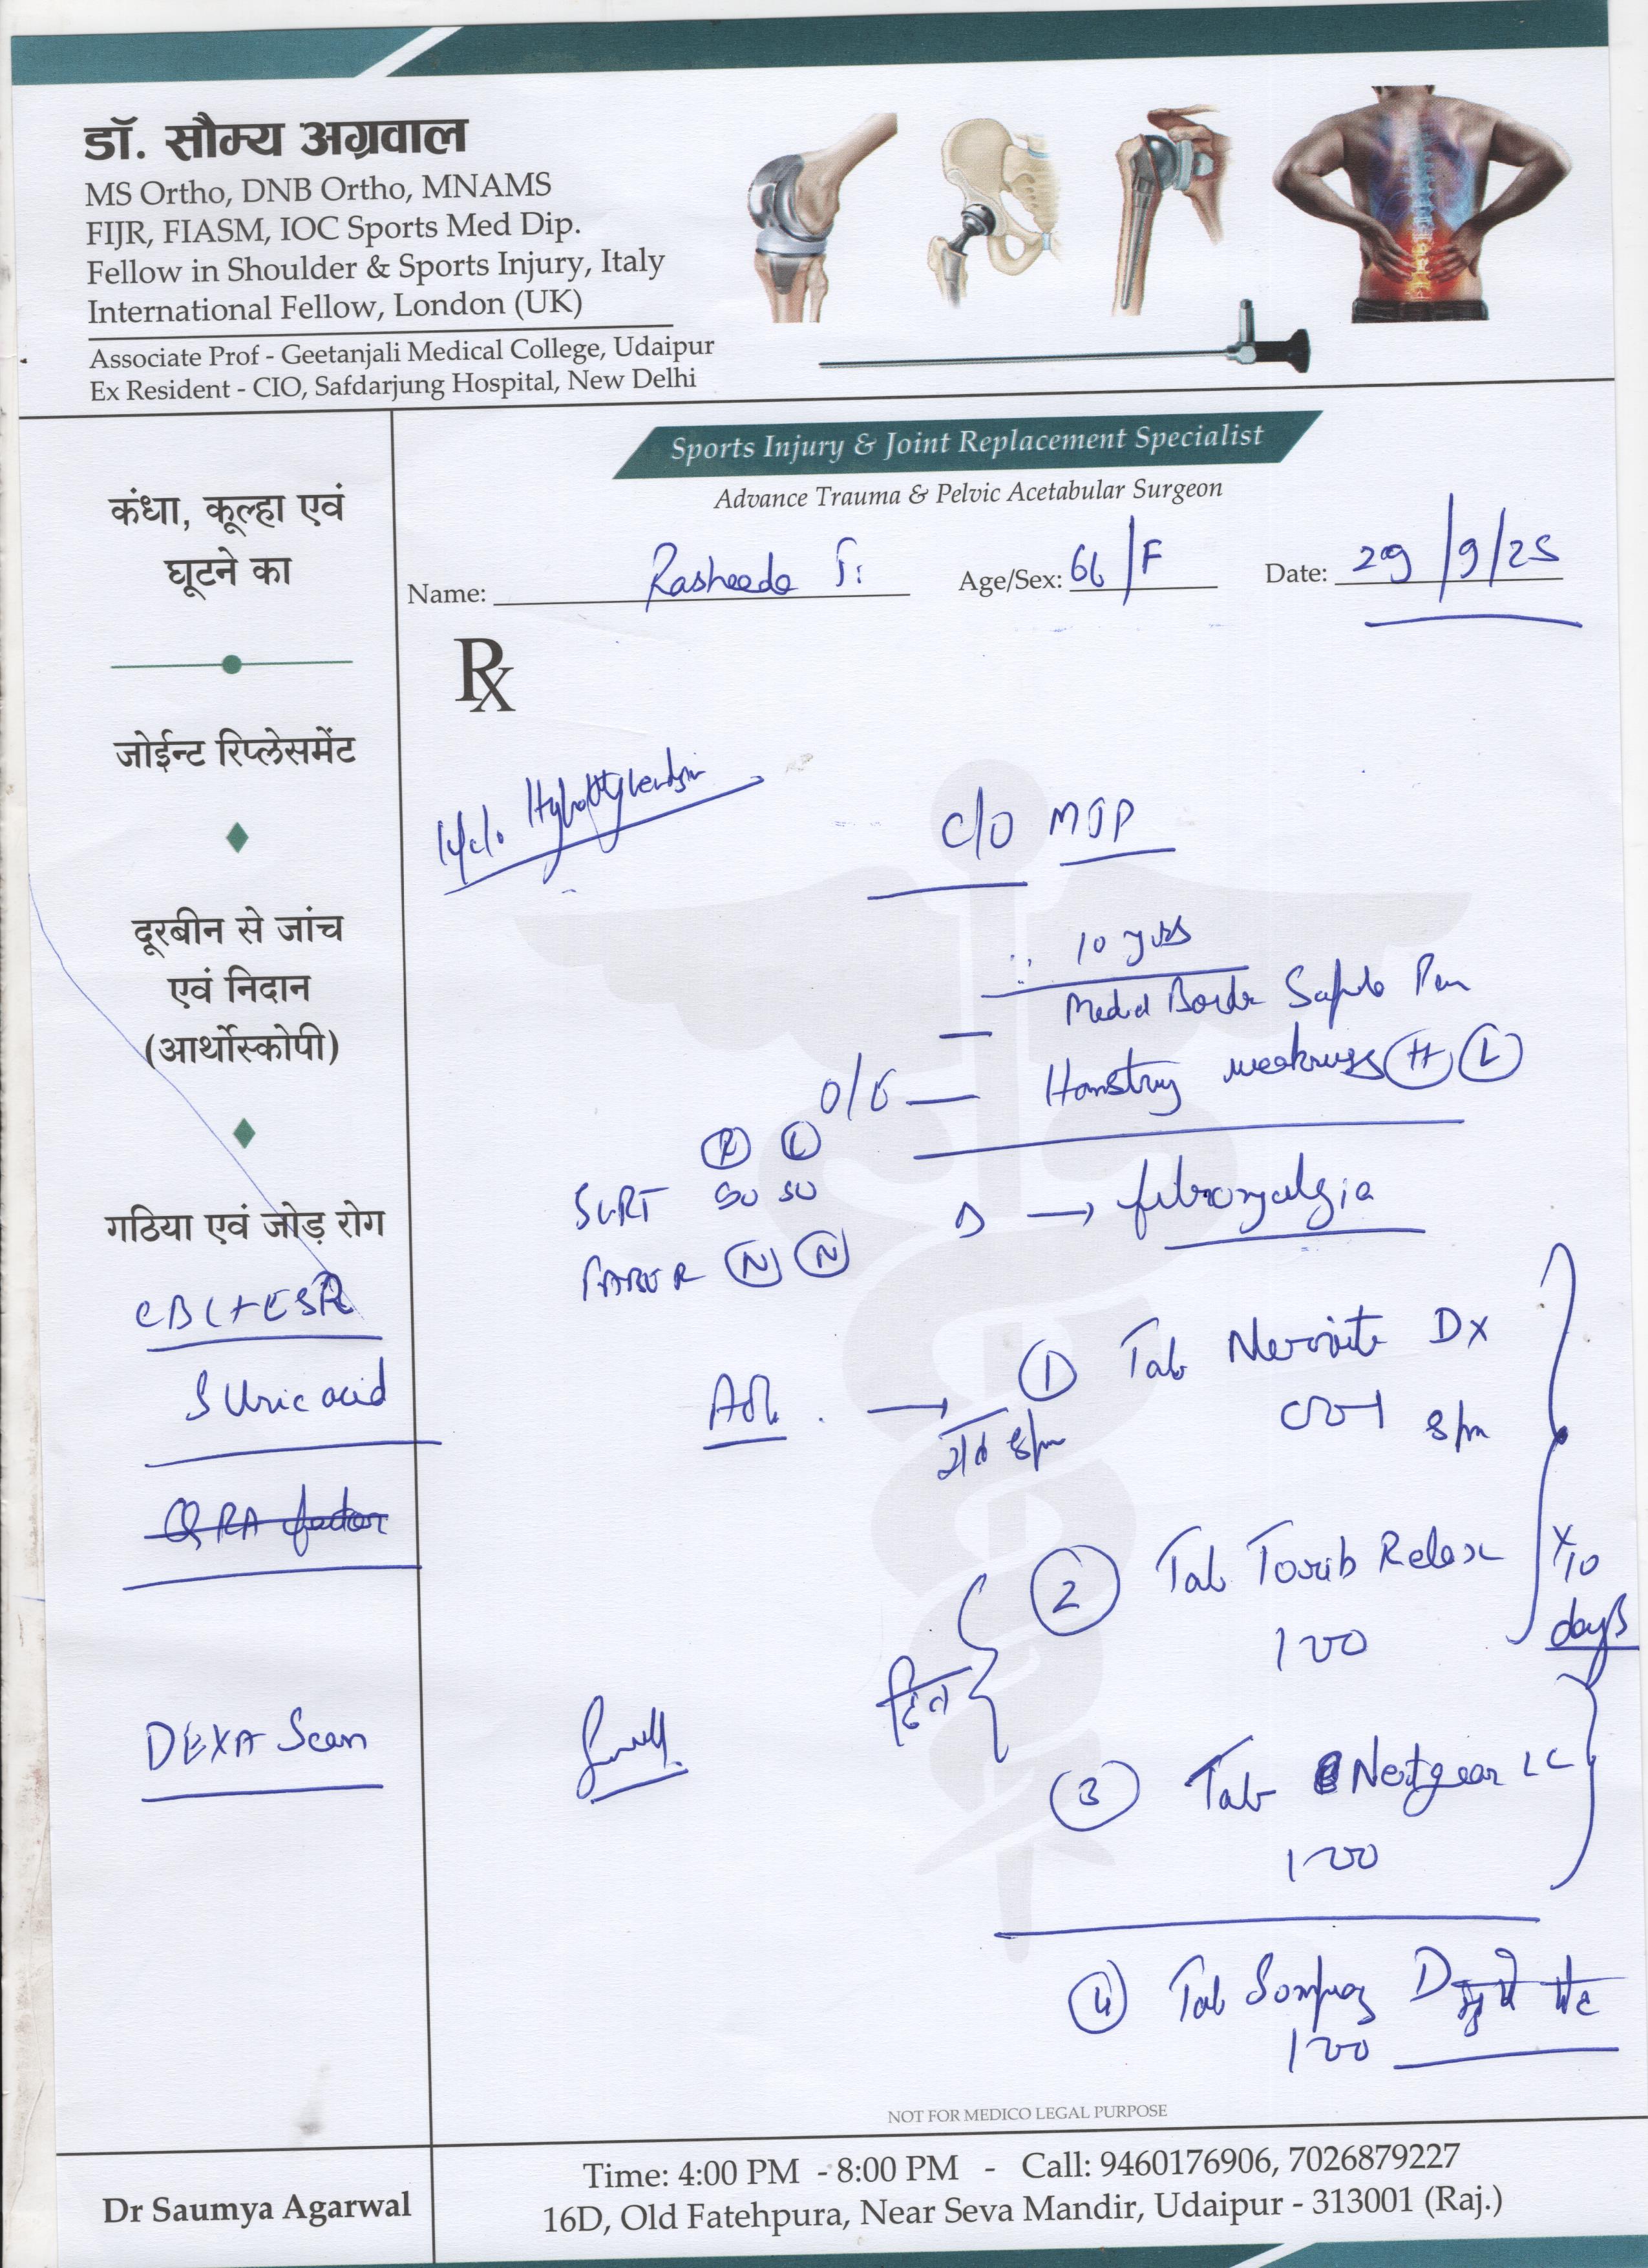 डॉ. सौम्य अग्रवाल
MS Ortho, DNB Ortho, MNAMS
FIJR, FIASM, IOC Sports Med Dip.
Fellow in Shoulder & Sports Injury, Italy
International Fellow, London (UK)
Associate Prof - Geetanjali Medical College, Udaipur
Ex Resident - CIO, Safdarjung Hospital, New Delhi
Sports Injury & Joint Replacement Specialist
Advance Trauma & Pelvic Acetabular Surgeon
Name: Rasheeda T. Age/Sex: 66/F Date: 29/9/25
Rx
कंधा, कूल्हा एवं
घूटने का
जोईन्ट रिप्लेसमेंट
दूरबीन से जांच
एवं निदान
(आर्थोस्कोपी)
गठिया एवं जोड़ रोग
CBC+ESR
S Uric acid
RA factor
DEXA Scan
C/O MJP
10 yrs
Medial Border Pain
O/E — Hamstring weakness (H) (L)
(R) (L)
SLRT 80 80
D → fibromyalgia
FABER (N) (N)
Adv. → (1) Tab Dx
001 8pm
रात 8pm
(2) Tab Torib Relax
100
x 10 days
दिन
(3) Tab Nextgear LC
100
(4) Tab Sompraz D
100
NOT FOR MEDICO LEGAL PURPOSE
Dr Saumya Agarwal
Time: 4:00 PM - 8:00 PM - Call: 9460176906, 7026879227
16D, Old Fatehpura, Near Seva Mandir, Udaipur - 313001 (Raj.)